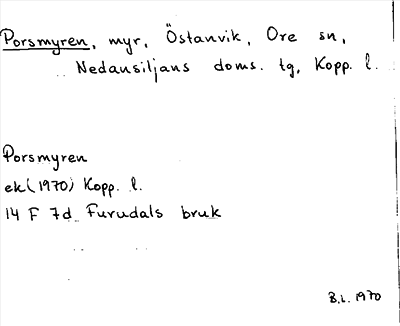 Porsmyren, myr, Östanvik, Ore sn,
Nedansiljans doms. tg, Kopp. l.
Porsmyren
ek (1970) Kopp. l.
14 F 7d Furudals bruk
B.L. 1970